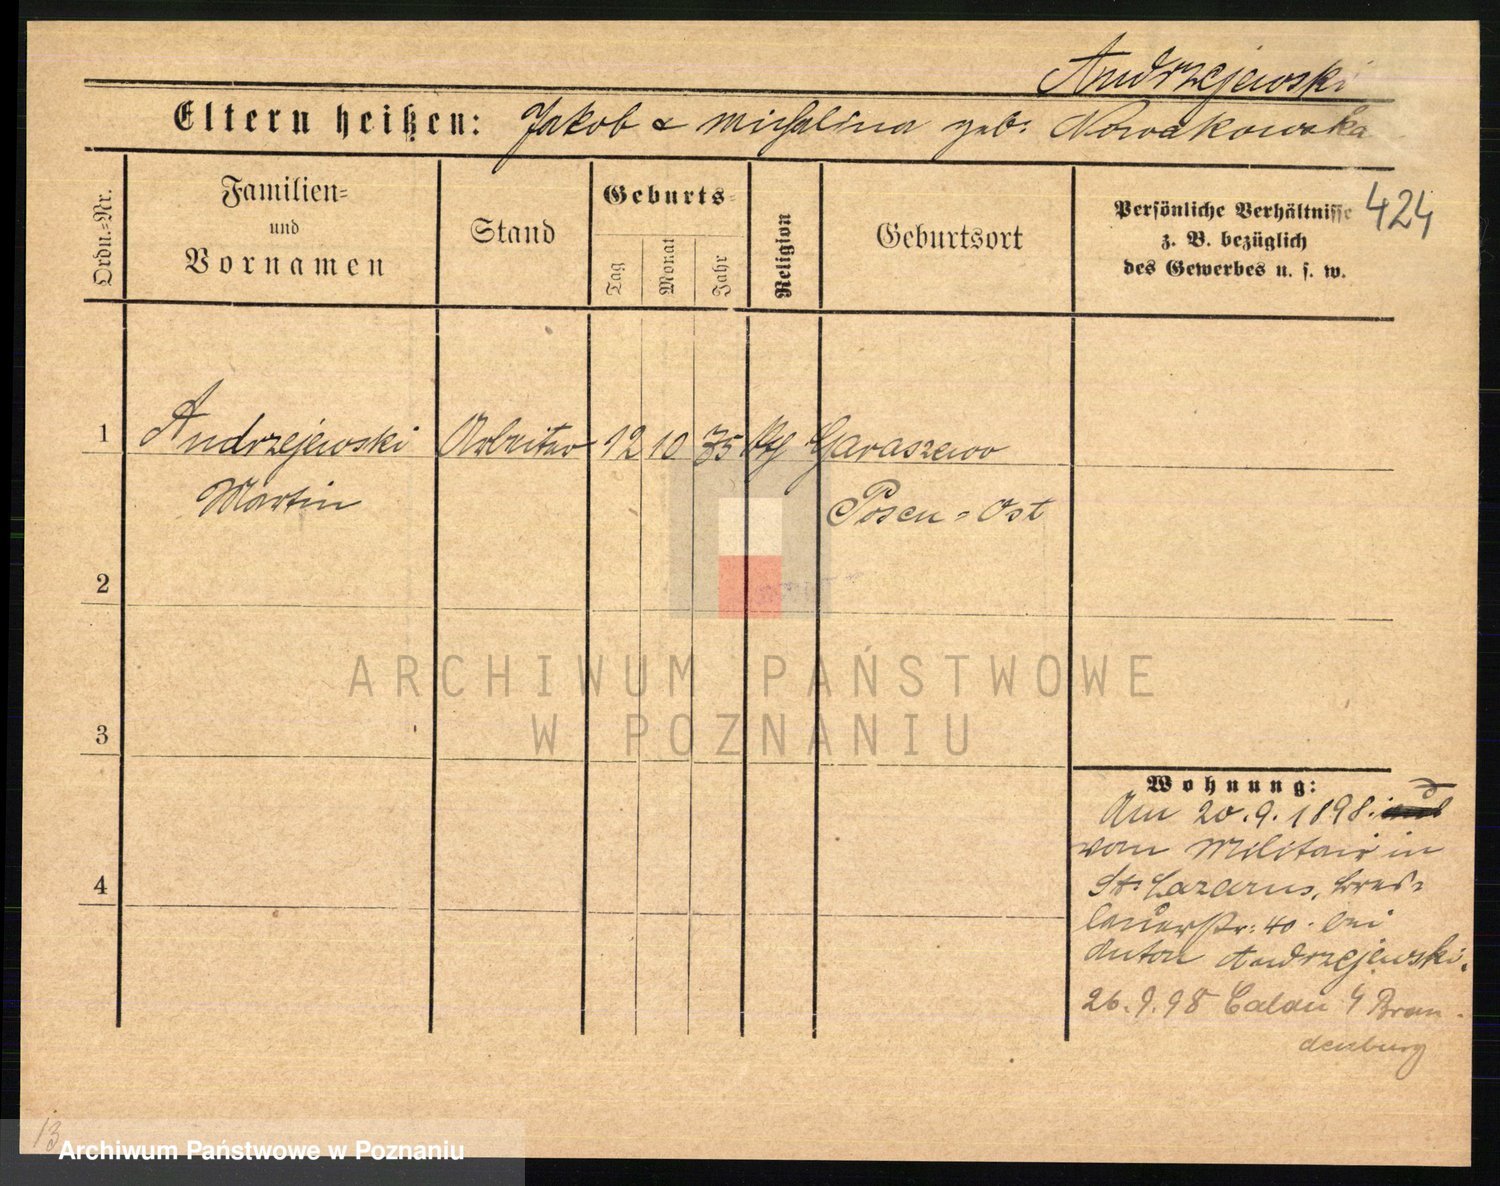 Andrzejewski
Eltern heißen: Jakob & Michalina geb. Nowakowska
424
Ordn.=Nr.
Familien=
und
Vornamen
Stand
Geburts=
Tag
Monat
Jahr
Religion
Geburtsort
Persönliche Verhältnisse
z. B. bezüglich
des Gewerbes u. s. w.
1 Andrzejewski Arbeiter 12 10 75 Garaszewo
Martin Posen=Ost
2
3
4
Wohnung:
Am 20.9.1898.
vom Militair in
St. Lazarus, Bres=
lauerstr. 40. bei
Anton Andrzejewski.
26.9.98 Calau Bran-
denburg
13
ARCHIWUM PAŃSTWOWE
W POZNANIU
Archiwum Państwowe w Poznaniu